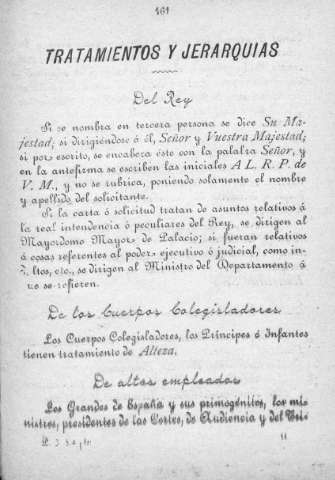 161
TRATAMIENTOS Y JERARQUIAS
Del Rey
Si se nombra en tercera persona se dice Su Ma-
jestad; si dirigiéndose á él, Señor y Vuestra Majestad;
si por escrito, se encabeza éste con la palabra Señor, y
en la antefirma se escriben las iniciales A L. R. P. de
V. M., y no se rubrica, poniendo solamente el nombre
y apellido del solicitante.
Si la carta ó solicitud tratan de asuntos relativos á
la real intendencia ó peculiares del Rey, se dirigen al
Mayordomo Mayor de Palacio; si fueran relativos
á cosas referentes al poder ejecutivo ó judicial, como in-
etc., se dirigen al Ministro del Departamento á
que se refieren.
De los Cuerpos Colegisladores
Los Cuerpos Colegisladores, los Príncipes é Infantes
tienen tratamiento de Alteza.
De altos empleados
Los Grandes de España y sus primogénitos, los mi-
nistros, presidentes de las Cortes, de Audiencia y del Tri-
11